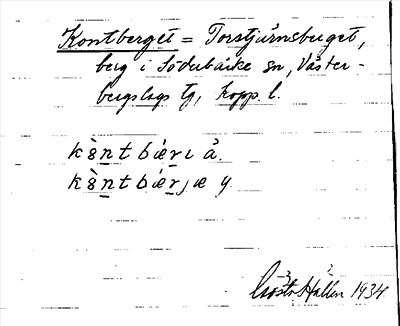 Kontberget = Torstjärnsberget,
berg i Söderbärke sn, Väster-
bergslags tg, Kopp. l.
kö̀ntbi̇́ærı å.
kö̀ntbi̇́ærjæ y.
Gösta Hallén 1934